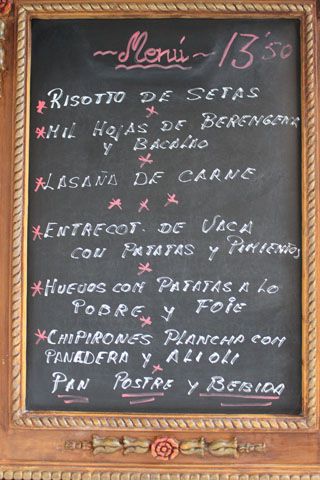 ~ Menú ~ 13'50
* RISOTTO DE SETAS
* MIL HOJAS DE BERENGENA
Y BACALAO
* LASAÑA DE CARNE
* ENTRECOT. DE VACA
CON PATATAS Y PIMIENTOS
* HUEVOS CON PATATAS A LO
POBRE Y FOIE
* CHIPIRONES PLANCHA CON
PANADERA Y ALI OLI
PAN POSTRE Y BEBIDA